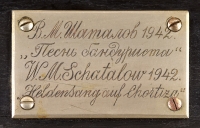 В.М.Шаталов 1942.
„Песнь бандуриста“
W.M.Schatalow 1942.
Heldensang auf Chortiza.